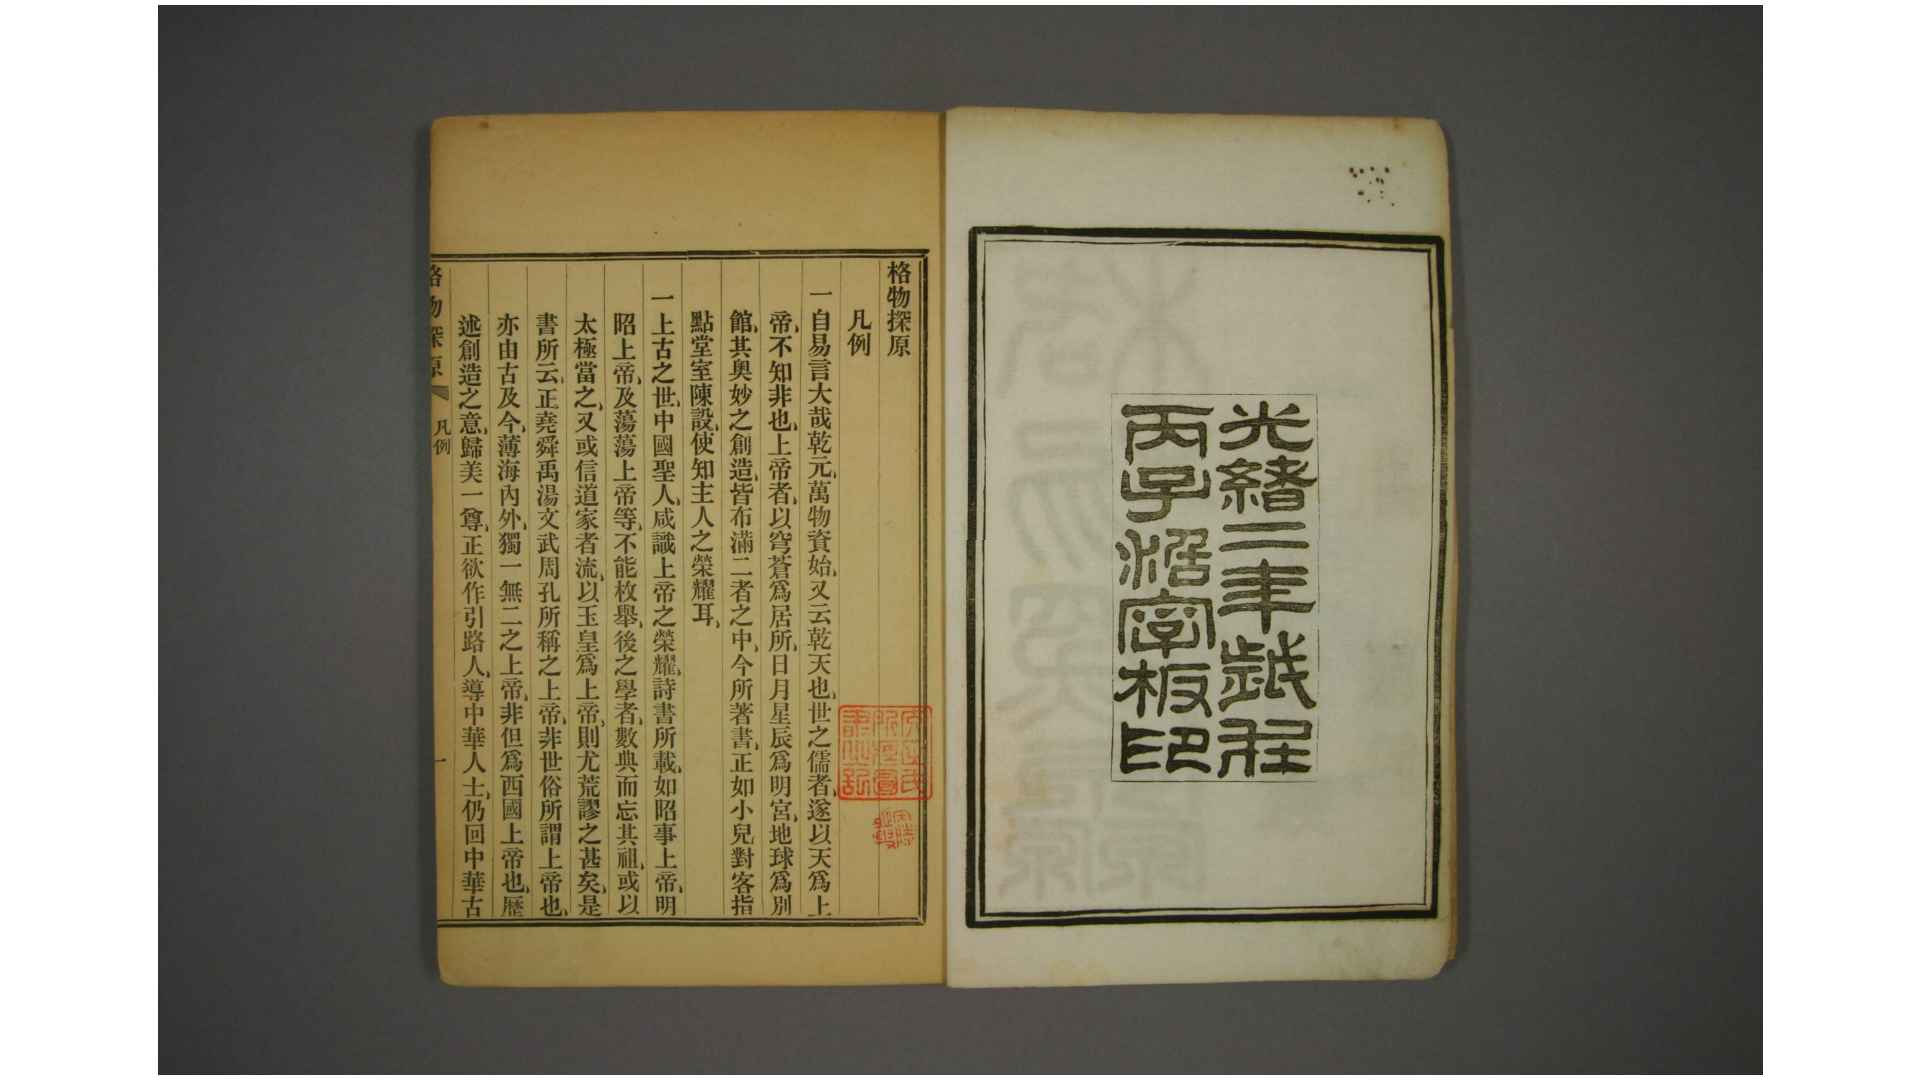 光緒二年歲在
丙子活字板印
格物探原
凡例
一自易言大哉乾元、萬物資始、又云乾天也、世之儒者、遂以天爲上
帝、不知非也、上帝者、以穹蒼爲居所、日月星辰爲明宮、地球爲別
館、其奥妙之創造、皆布滿二者之中、今所著書、正如小兒對客指
點堂室陳設、使知主人之榮耀耳、
一上古之世、中國聖人、咸識上帝之榮耀、詩書所載、如昭事上帝、明
昭上帝、及蕩蕩上帝等、不能枚舉、後之學者、數典而忘其祖、或以
太極當之、又或信道家者流、以玉皇爲上帝、則尤荒謬之甚矣、是
書所云、正堯舜禹湯文武周孔所稱之上帝、非世俗所謂上帝也、
亦由古及今、薄海內外、獨一無二之上帝、非但爲西國上帝也、歷
述創造之意、歸美一尊、正欲作引路人、導中華人士、仍回中華古
格物探原
凡例
一